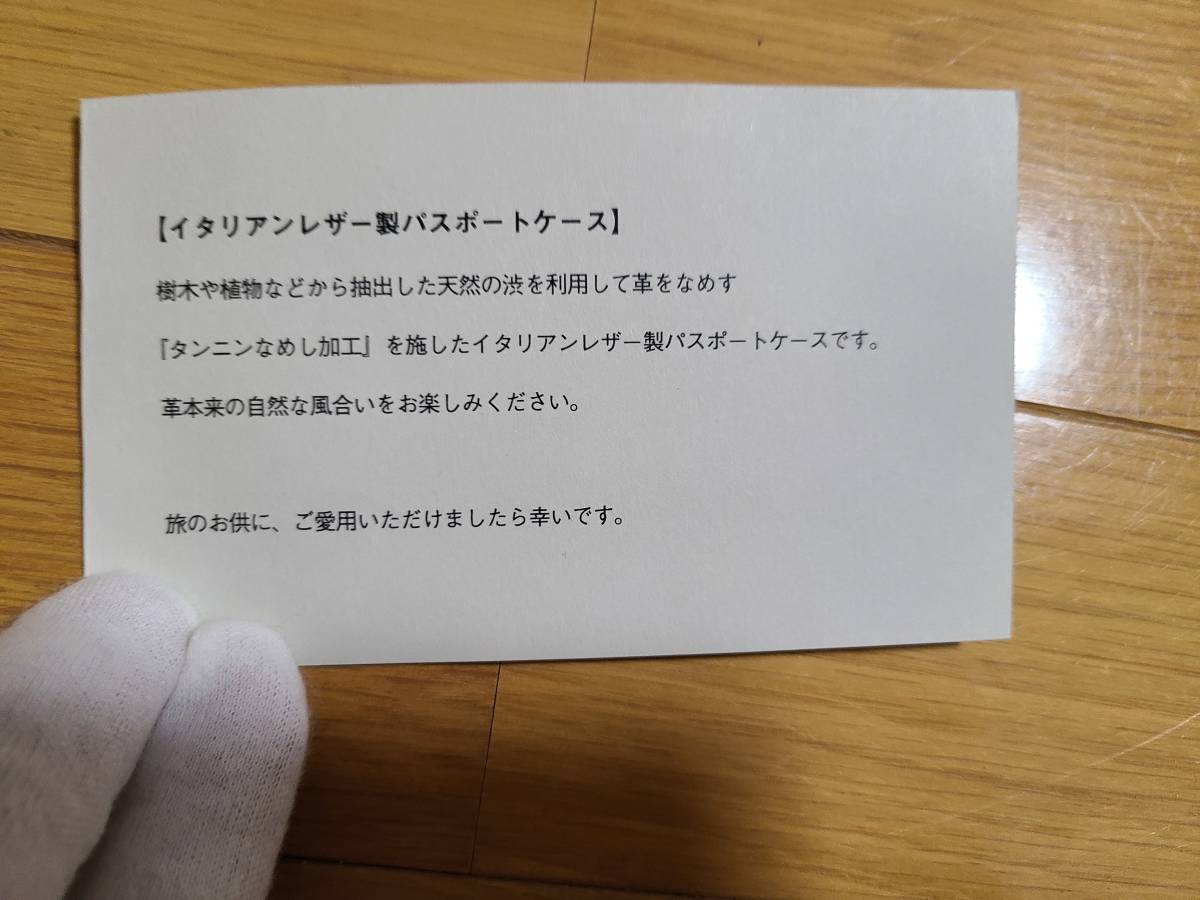 【イタリアンレザー製パスポートケース】
樹木や植物などから抽出した天然の渋を利用して革をなめす
『タンニンなめし加工』を施したイタリアンレザー製パスポートケースです。
革本来の自然な風合いをお楽しみください。
旅のお供に、ご愛用いただけましたら幸いです。